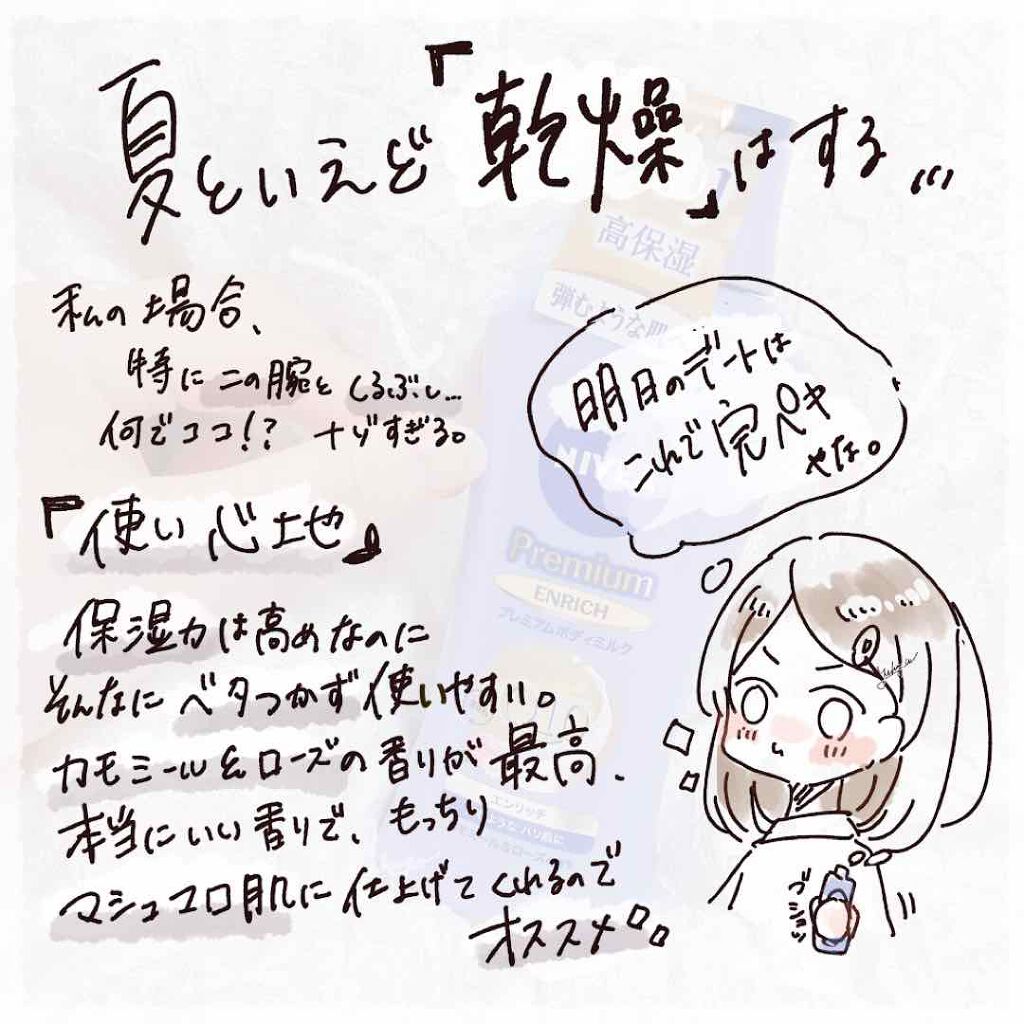 夏といえど『乾燥』はする…
私の場合、
特に二の腕とくるぶし…
何でココ！？ナゾすぎる。
『使い心地』
保湿力は高めなのに
そんなにベタつかず使いやすい。
カモミール&ローズの香りが最高、
本当にいい香りで、もっちり
マシュマロ肌に仕上げてくれるので
オススメ。
明日のデートは
これで完ペキ
やな。
プシュッ
高保湿
弾むような肌
NIV
Premium
ENRICH
プレミアムボディミルク
エンリッチ